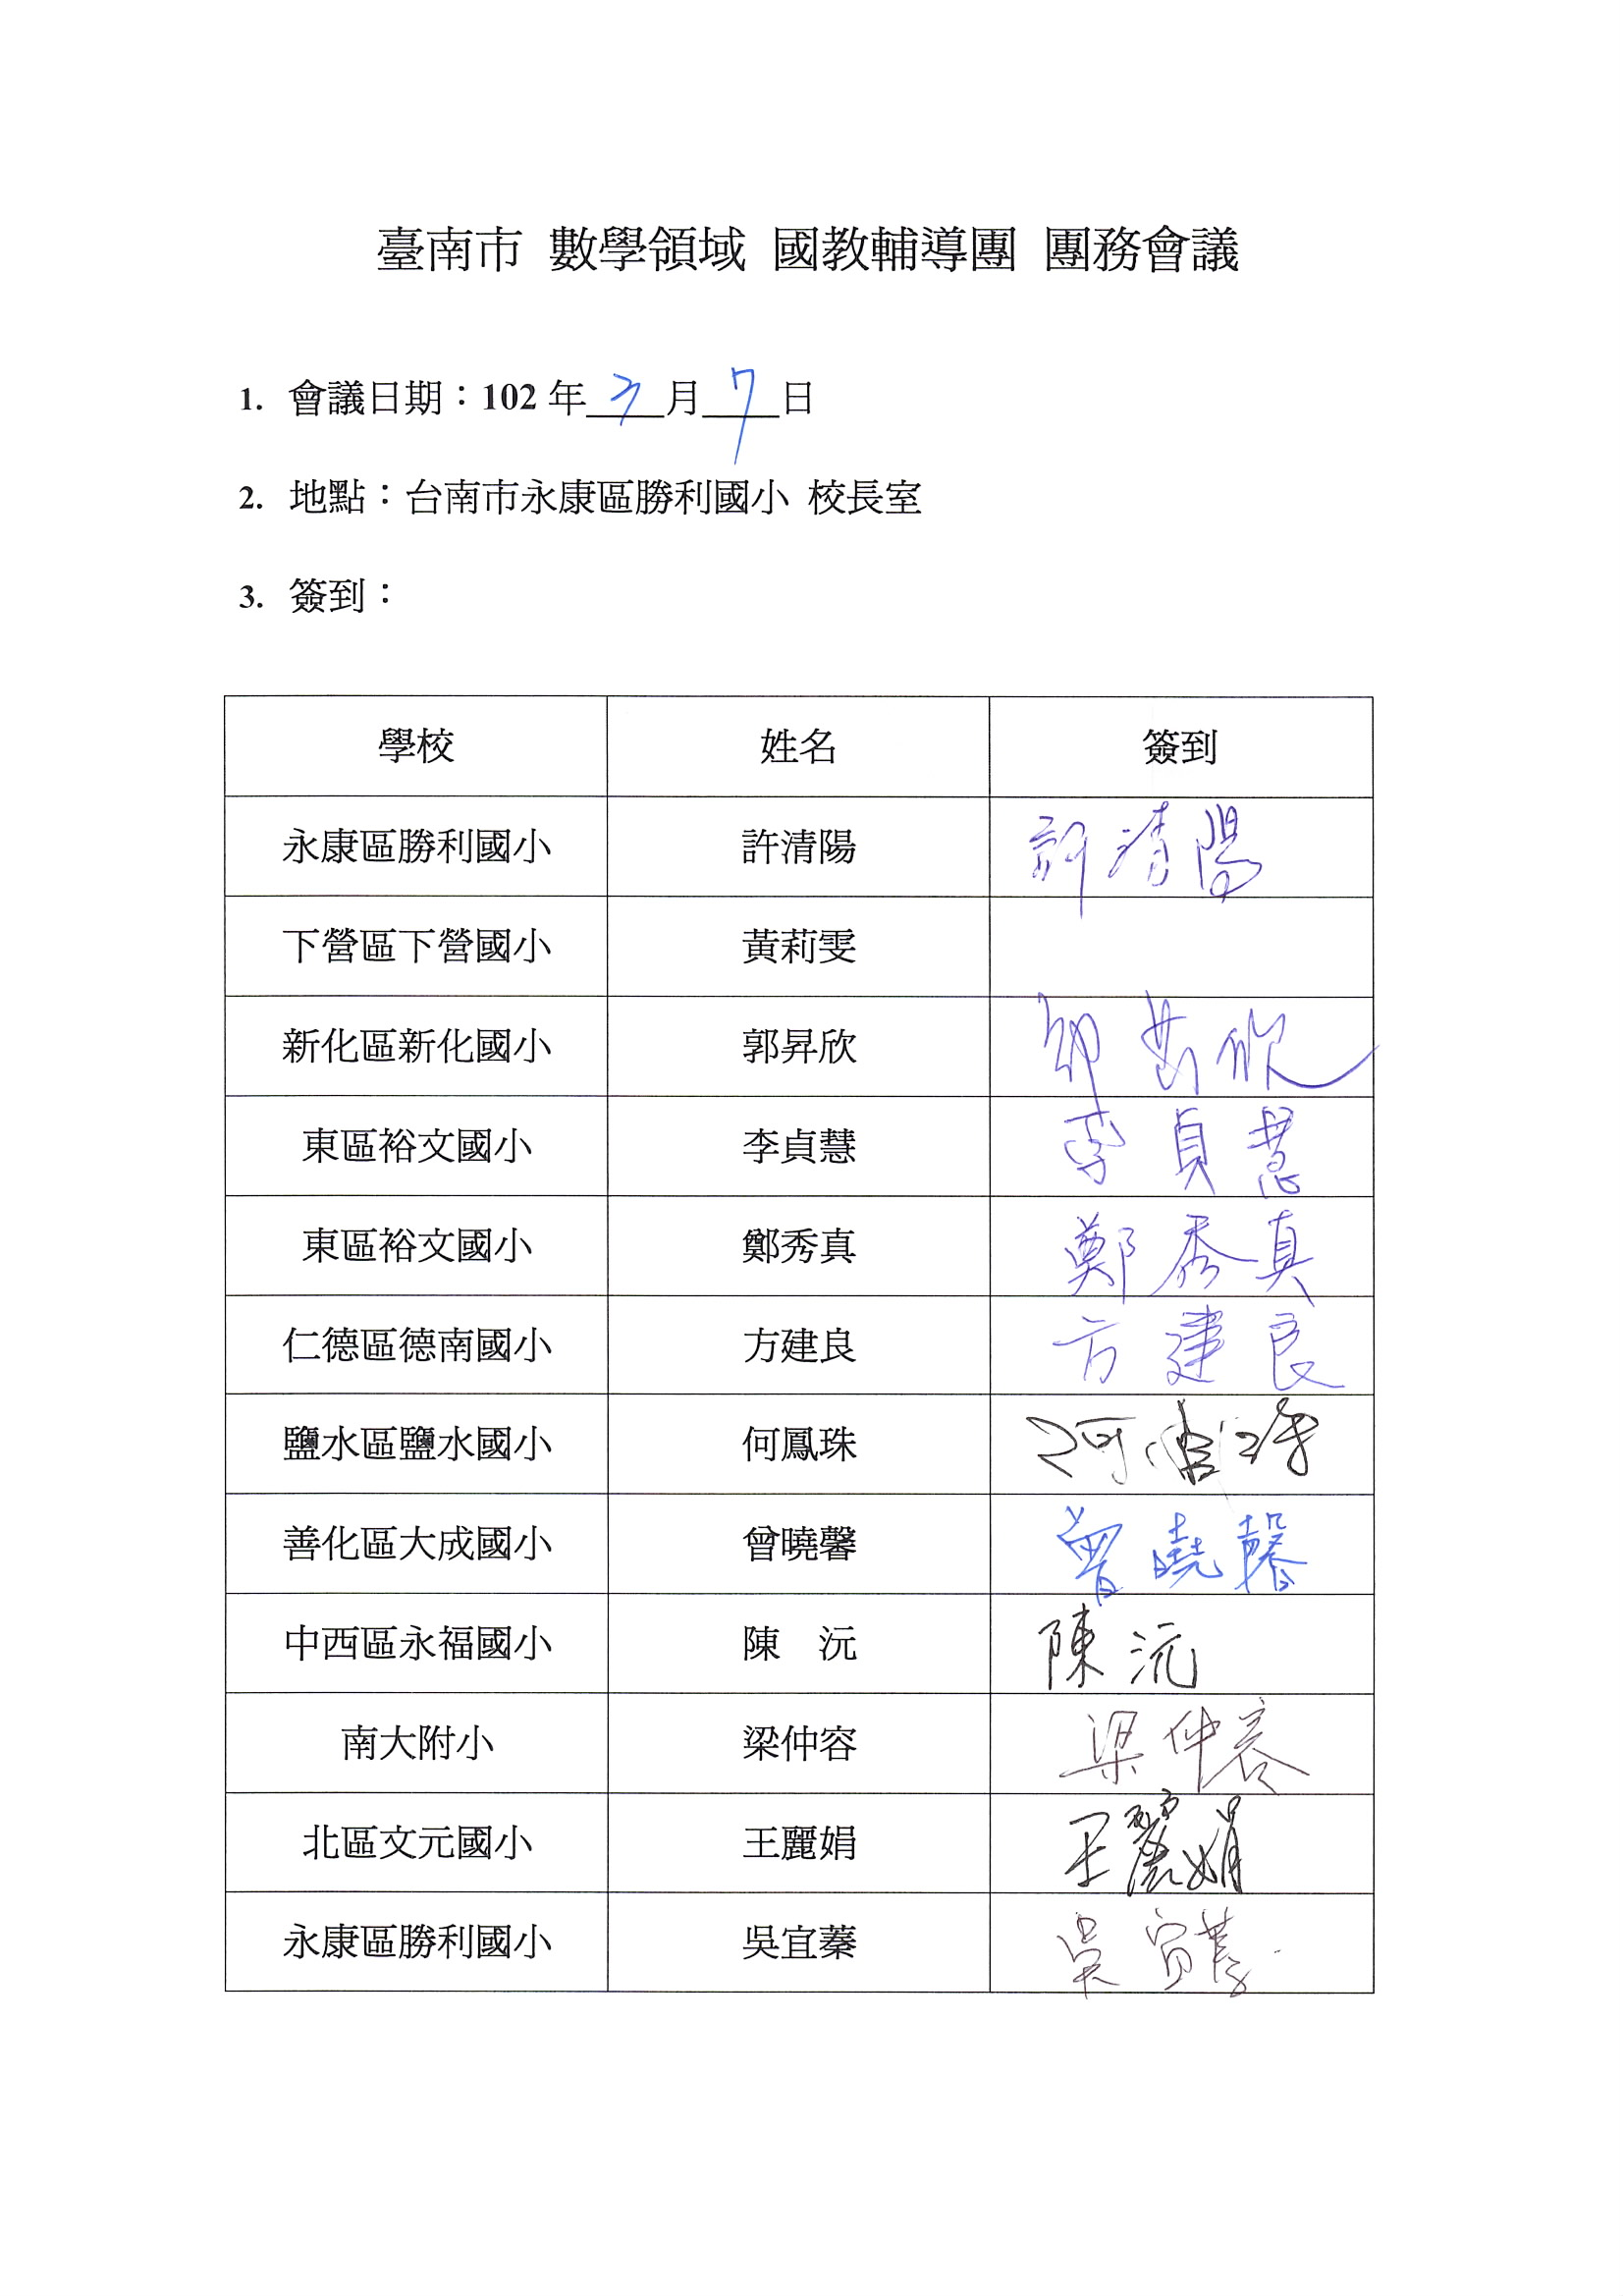 臺南市 數學領域 國教輔導團 團務會議
1. 會議日期：102 年 3 月 7 日
2. 地點：台南市永康區勝利國小 校長室
3. 簽到：
學校 姓名 簽到
永康區勝利國小 許清陽 許清陽
下營區下營國小 黃莉雯
新化區新化國小 郭昇欣 郭昇欣
東區裕文國小 李貞慧 李貞慧
東區裕文國小 鄭秀真 鄭秀真
仁德區德南國小 方建良 方建良
鹽水區鹽水國小 何鳳珠 何鳳珠
善化區大成國小 曾曉馨 曾曉馨
中西區永福國小 陳　沅 陳沅
南大附小 梁仲容 梁仲容
北區文元國小 王麗娟 王麗娟
永康區勝利國小 吳宜蓁 吳宜蓁